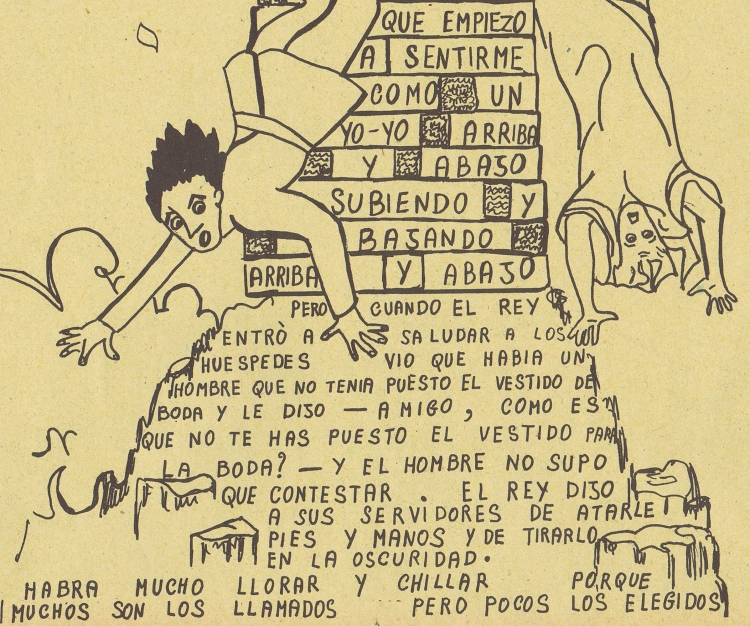 QUE EMPIEZO
A SENTIRME
COMO UN
YO-YO ARRIBA
Y ABAJO
SUBIENDO Y
BAJANDO
ARRIBA Y ABAJO
PERO CUANDO EL REY
ENTRÒ A SALUDAR A LOS
HUESPEDES VIO QUE HABIA UN
HOMBRE QUE NO TENIA PUESTO EL VESTIDO DE
BODA Y LE DIJO — AMIGO, COMO ES
QUE NO TE HAS PUESTO EL VESTIDO PARA
LA BODA? — Y EL HOMBRE NO SUPO
QUE CONTESTAR . EL REY DIJO
A SUS SERVIDORES DE ATARLE
PIES Y MANOS Y DE TIRARLO
EN LA OSCURIDAD.
HABRA MUCHO LLORAR Y CHILLAR PORQUE
MUCHOS SON LOS LLAMADOS PERO POCOS LOS ELEGIDOS